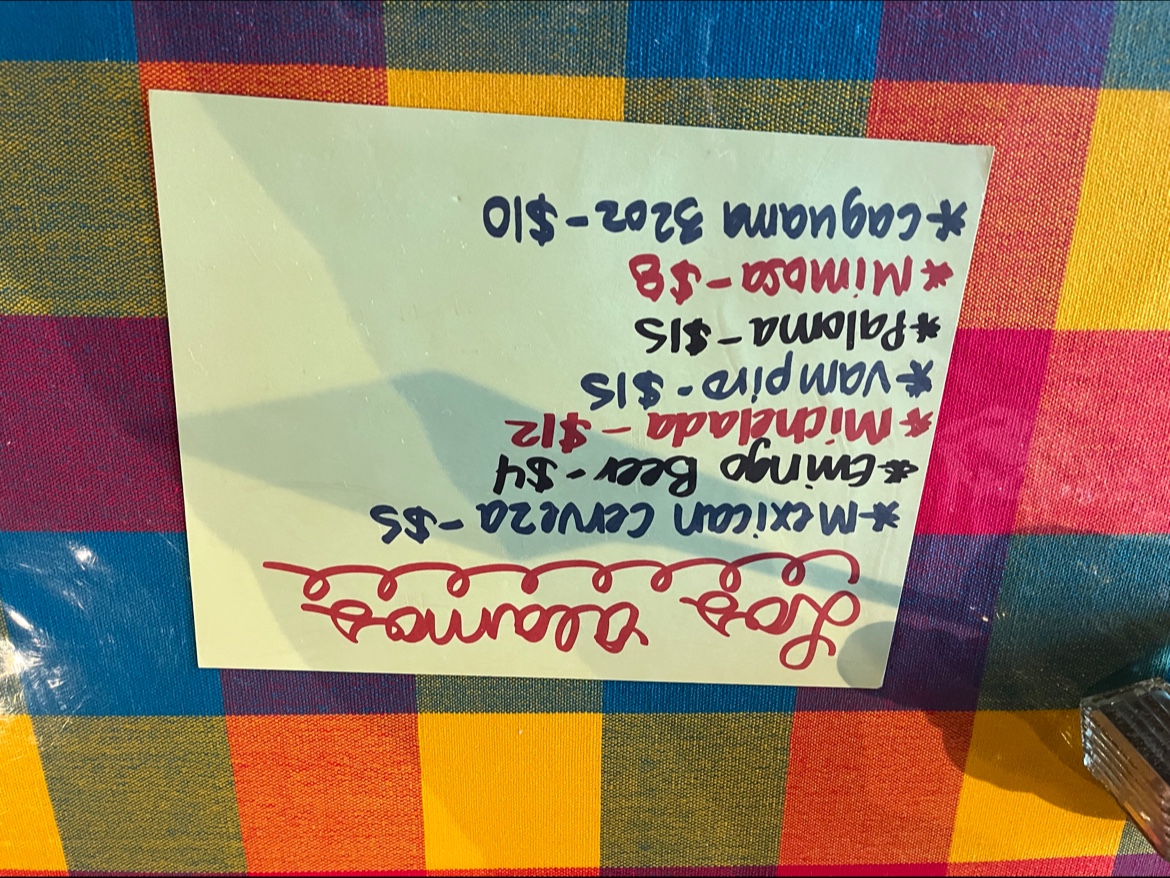 Los alamos
*Mexican Cerveza-$5
*Gringo Beer-$4
*Michelada-$12
*Vampiro-$15
*Paloma-$15
*Mimosa-$8
*Caguama 32oz-$10